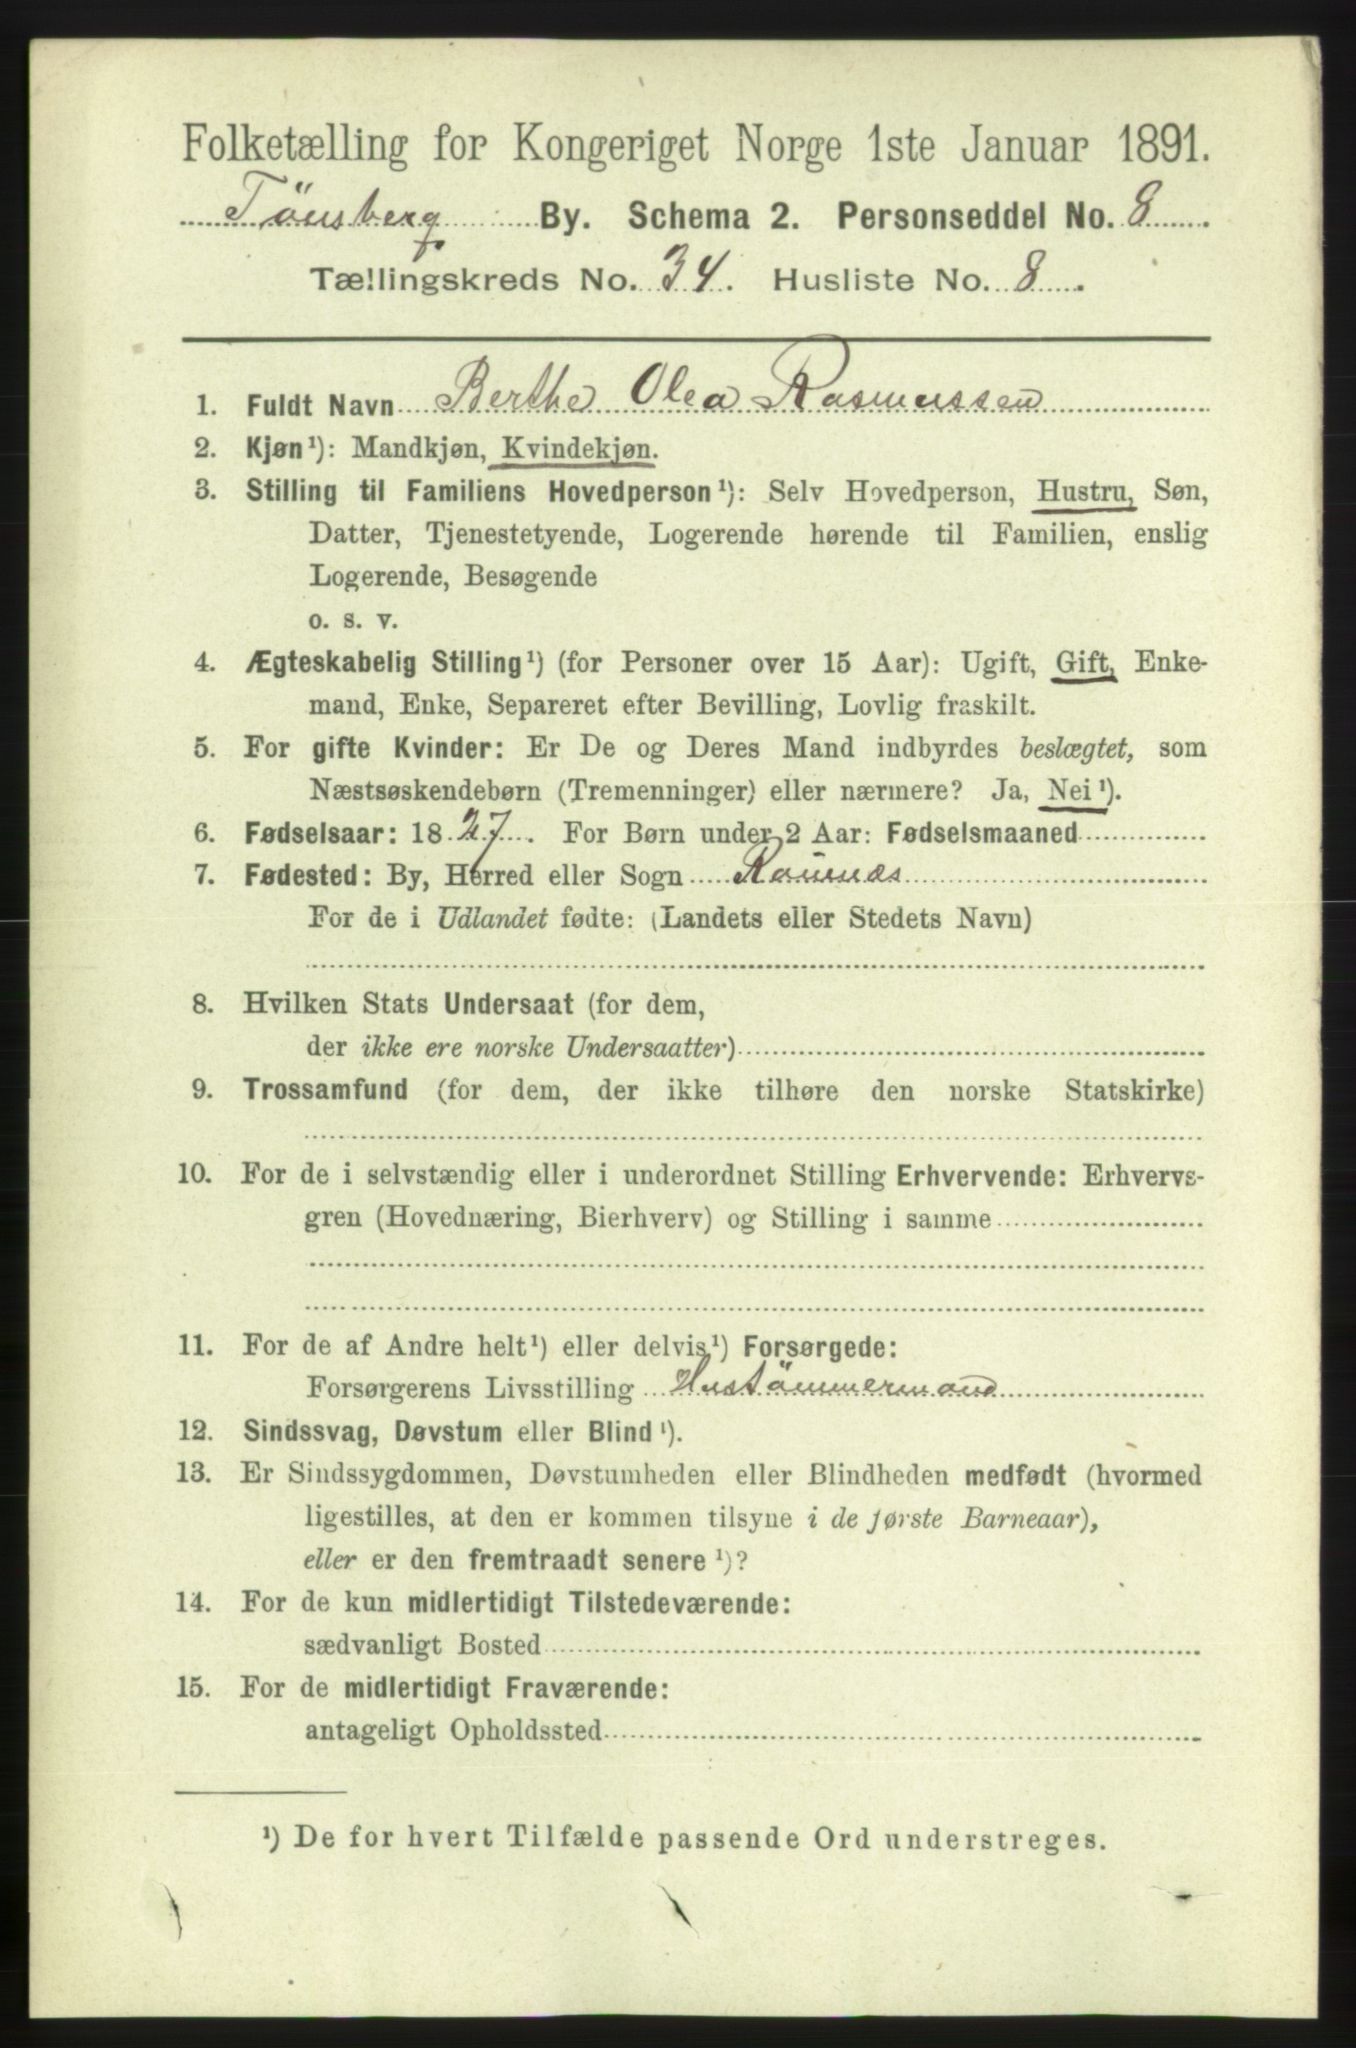 Folketælling for Kongeriget Norge 1ste Januar 1891.
Tönsberg By. Schema 2. Personseddel No. 8
Tællingskreds No. 34. Husliste No. 8.
1. Fuldt Navn Berthe Olea Rasmussen
2. Kjøn¹): Mandkjøn, Kvindekjøn.
3. Stilling til Familiens Hovedperson¹): Selv Hovedperson, Hustru, Søn,
Datter, Tjenestetyende, Logerende hørende til Familien, enslig
Logerende, Besøgende
o. s. v.
4. Ægteskabelig Stilling¹) (for Personer over 15 Aar): Ugift, Gift, Enke-
mand, Enke, Separeret efter Bevilling, Lovlig fraskilt.
5. For gifte Kvinder: Er De og Deres Mand indbyrdes beslægtet, som
Næstsøskendebørn (Tremenninger) eller nærmere? Ja, Nei¹).
6. Fødselsaar: 1827. For Børn under 2 Aar: Fødselsmaaned
7. Fødested: By, Herred eller Sogn Ramnæs
For de i Udlandet fødte: (Landets eller Stedets Navn)
8. Hvilken Stats Undersaat (for dem,
der ikke ere norske Undersaatter)
9. Trossamfund (for dem, der ikke tilhøre den norske Statskirke)
10. For de i selvstændig eller i underordnet Stilling Erhvervende: Erhvervs-
gren (Hovednæring, Bierhverv) og Stilling i samme
11. For de af Andre helt¹) eller delvis¹) Forsørgede:
Forsørgerens Livsstilling Hustömmermand
12. Sindssvag, Døvstum eller Blind¹).
13. Er Sindssygdommen, Døvstumheden eller Blindheden medfødt (hvormed
ligestilles, at den er kommen tilsyne i de første Barneaar),
eller er den fremtraadt senere¹)?
14. For de kun midlertidigt Tilstedeværende:
sædvanligt Bosted
15. For de midlertidigt Fraværende:
antageligt Opholdssted
¹) De for hvert Tilfælde passende Ord understreges.